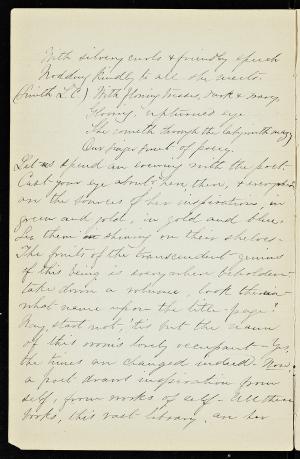 With silvery curls & friendly speech
Nodding kindly to all she meets.
(Smith L.C.) With flowing tresses, dark & wavy,
Glowing, upturned eye
She cometh through the labyrinth mazy
Our page's front of poesy.
Let us spend an evening with the poet.
Cast your eye about then, then, &
on the sources of her inspirations, in
green and gold, in gold and blue.
See them shining on their shelves.
The fruits of the transcendent genius
of this being is everywhere beholden
take down a volume, look therein
what name upon the title-page?
Nay, start not, 'tis but the name
of this room's lovely occupant - yes,
the times are changed indeed. Now,
a poet draws inspiration from
self, from works of self. All these
works, this vast library, are her